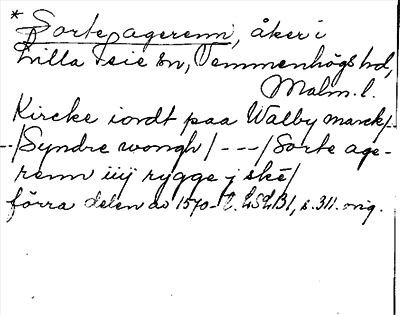 * Sorte agerenn, åker i
Lilla Isie sn, Vemmenhögs hd,
Malm. l.
Kircke iordt paa Walby marck/--
--/Syndre wongh/ - - - /Sorte age-
renn iiij rygge j ské/
förra delen av 1570-t. LSLB1, s. 311. orig.